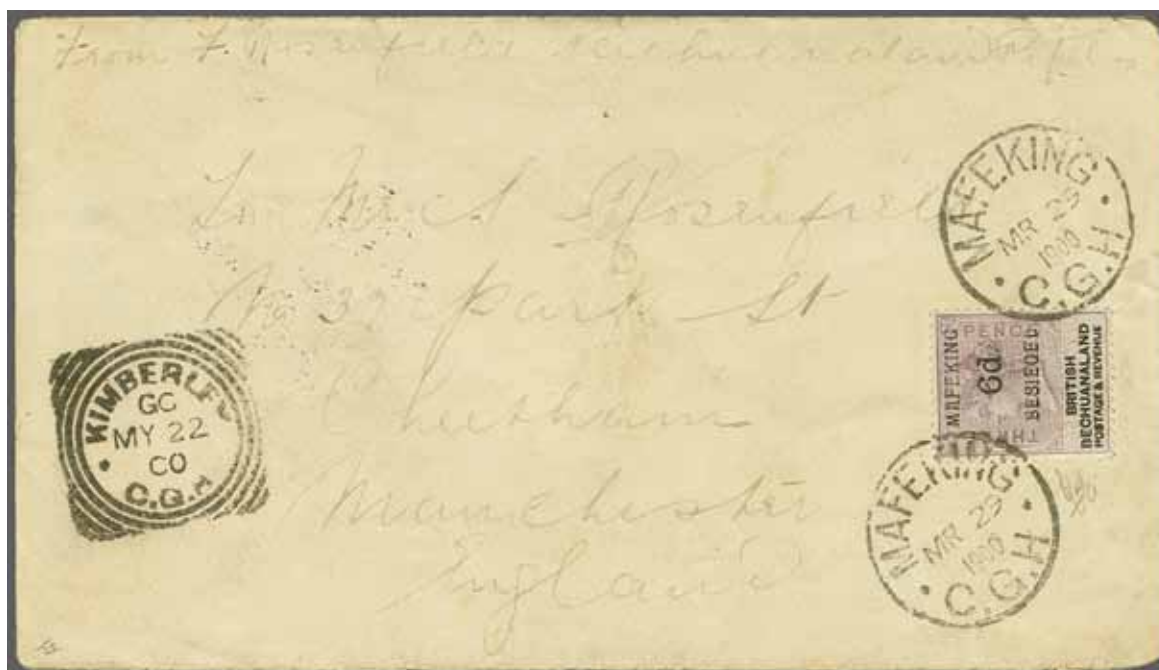 From F. Rosenfield Bechuanaland Rifles
To Mr. A Rosenfield
No 32 park St
Cheetham
Manchester
England
MAFEKING
MR 29
1900
C.G.H
MAFEKING
6d.
BESIEGED
PENC
TH
BRITISH
BECHUANALAND
POSTAGE & REVENUE
MAFEKING
MR 29
1900
C.G.H
KIMBERLEY
GC
MY 22
00
C.G.H